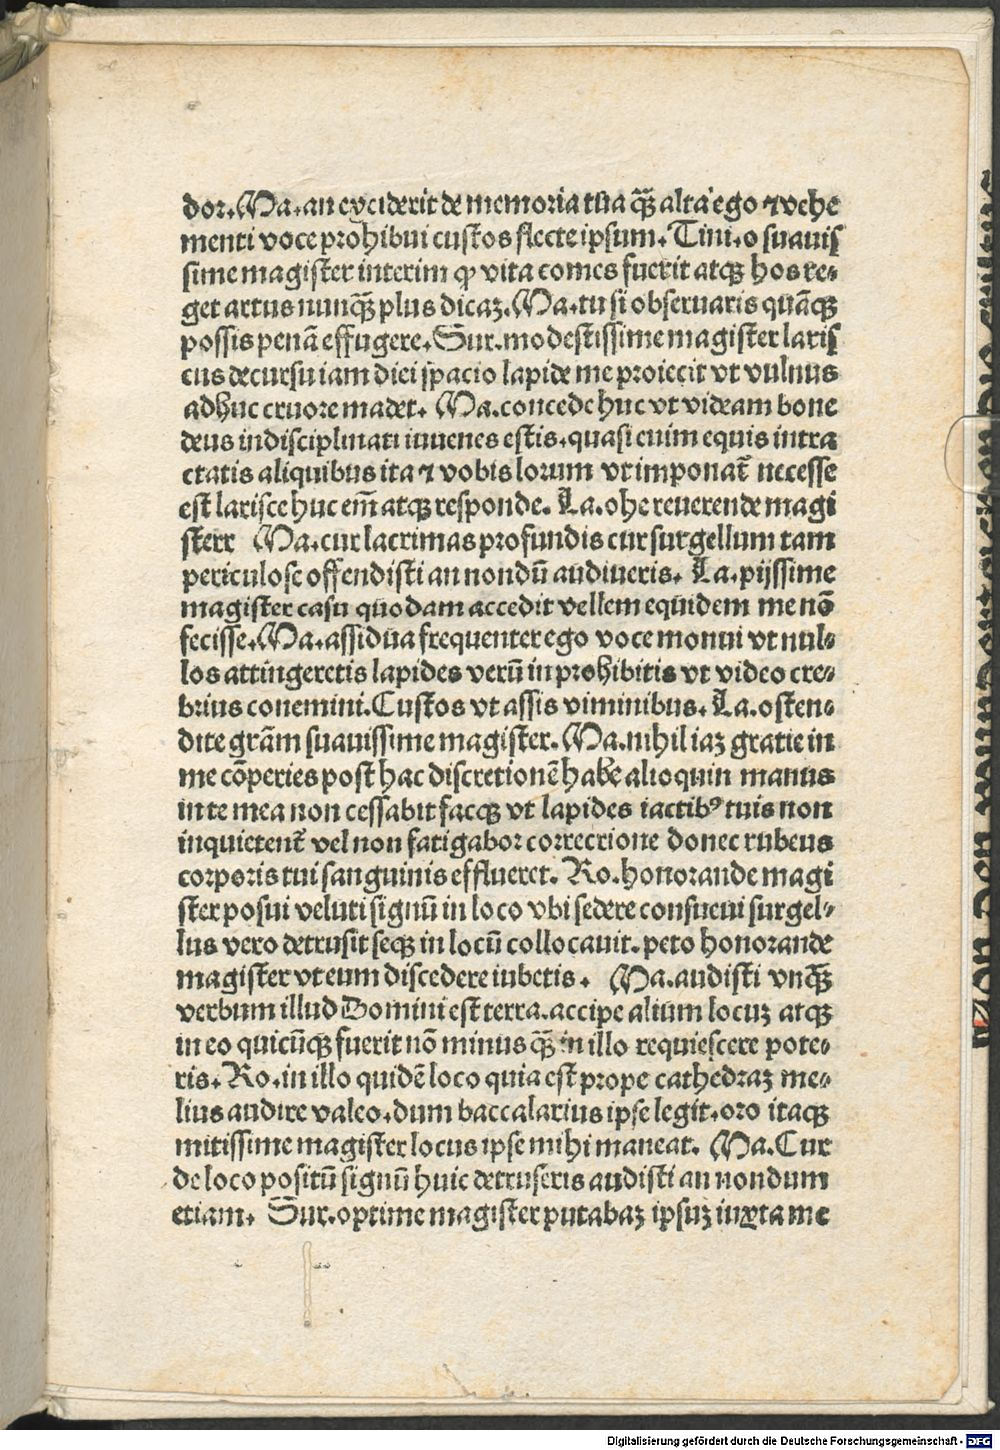 dor. Ma. an exciderit de memoria tua qq̃ꝫ alta ego ⁊ vehe
menti voce prohibui custos flecte ipsum. Tini. o suauis
sime magister interim ꝙ vita comes fuerit atqꝫ hos re⸗
get artus nunq̃ꝫ plus dicaꝫ. Ma. tu si obseruaris quãcqꝫ
possis penã effugere. Sur. modestissime magister laris
cus decursu iam diei spacio lapide me proiecit vt vulnus
adhuc cruore madet. Ma. concede huc vt videam bone
deus indisciplinati iuuenes estis. quasi enim equis intra
ctatis aliquibus ita ⁊ vobis lorum vt imponat̃ necesse
est larisce huc em̃ atqꝫ responde. La. ohe reuerende magi
sterr Ma. cur lacrimas profundis cur surgellum tam
periculose offendisti an nondũ audiueris. La. pijssime
magister casu quodam accedit vellem equidem me nõ
fecisse. Ma. assidua frequenter ego voce monui vt nul⸗
los attingeretis lapides verũ in prohibitis vt video cre⸗
brius conemini. Custos vt assis viminibus. La. osten⸗
dite grãm suauissime magister. Ma. nihil iaꝫ gratie in
me cõperies post hac discretionẽ habe alioquin manus
in te mea non cessabit facqꝫ vt lapides iactibꝰ tuis non
inquietent̃ vel non fatigabor correctione donec rubeus
corporis tui sanguinis efflueret. Ro. honorande magi
ster posui veluti signũ in loco vbi sedere consueui surgel⸗
lus vero detrusit seqꝫ in locũ collocauit. peto honorande
magister vt eum discedere iubetis. Ma. audisti vnq̃ꝫ
verbum illud Domini est terra. accipe alium locuꝫ atqꝫ
in eo quicũqꝫ fuerit nõ minus q̃ꝫ in illo requiescere pote⸗
ris. Ro. in illo quidẽ loco quia est prope cathedraꝫ me⸗
lius audire valeo. dum baccalarius ipse legit. oro itaqꝫ
mitissime magister locus ipse mihi maneat. Ma. Cur
de loco positũ signũ huic detruseris audisti an nondum
etiam. Sur. optime magister putabaꝫ ipsuꝫ iuxta me
Digitalisierung gefördert durch die Deutsche Forschungsgemeinschaft - DFG